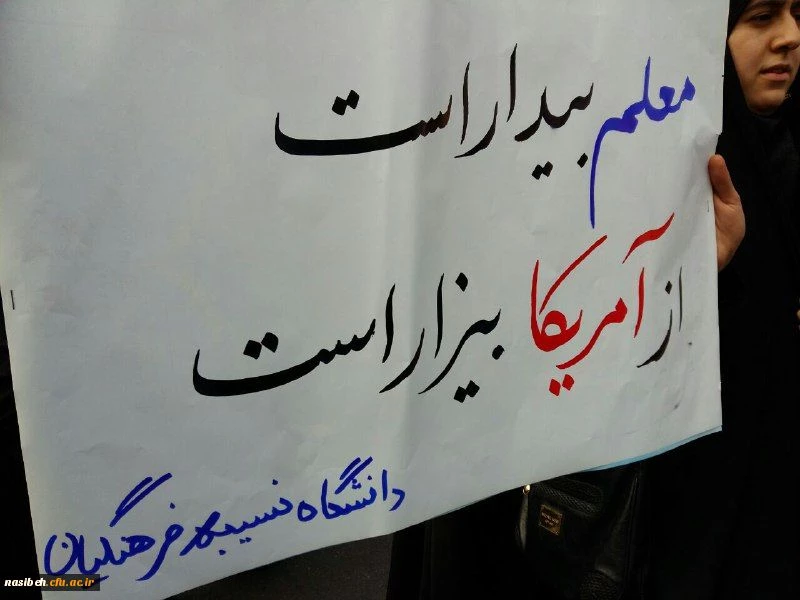 معلم بیدار است
از آمریکا بیزار است
دانشگاه نسیبه فرهنگیان
nasibeh.cfu.ac.ir